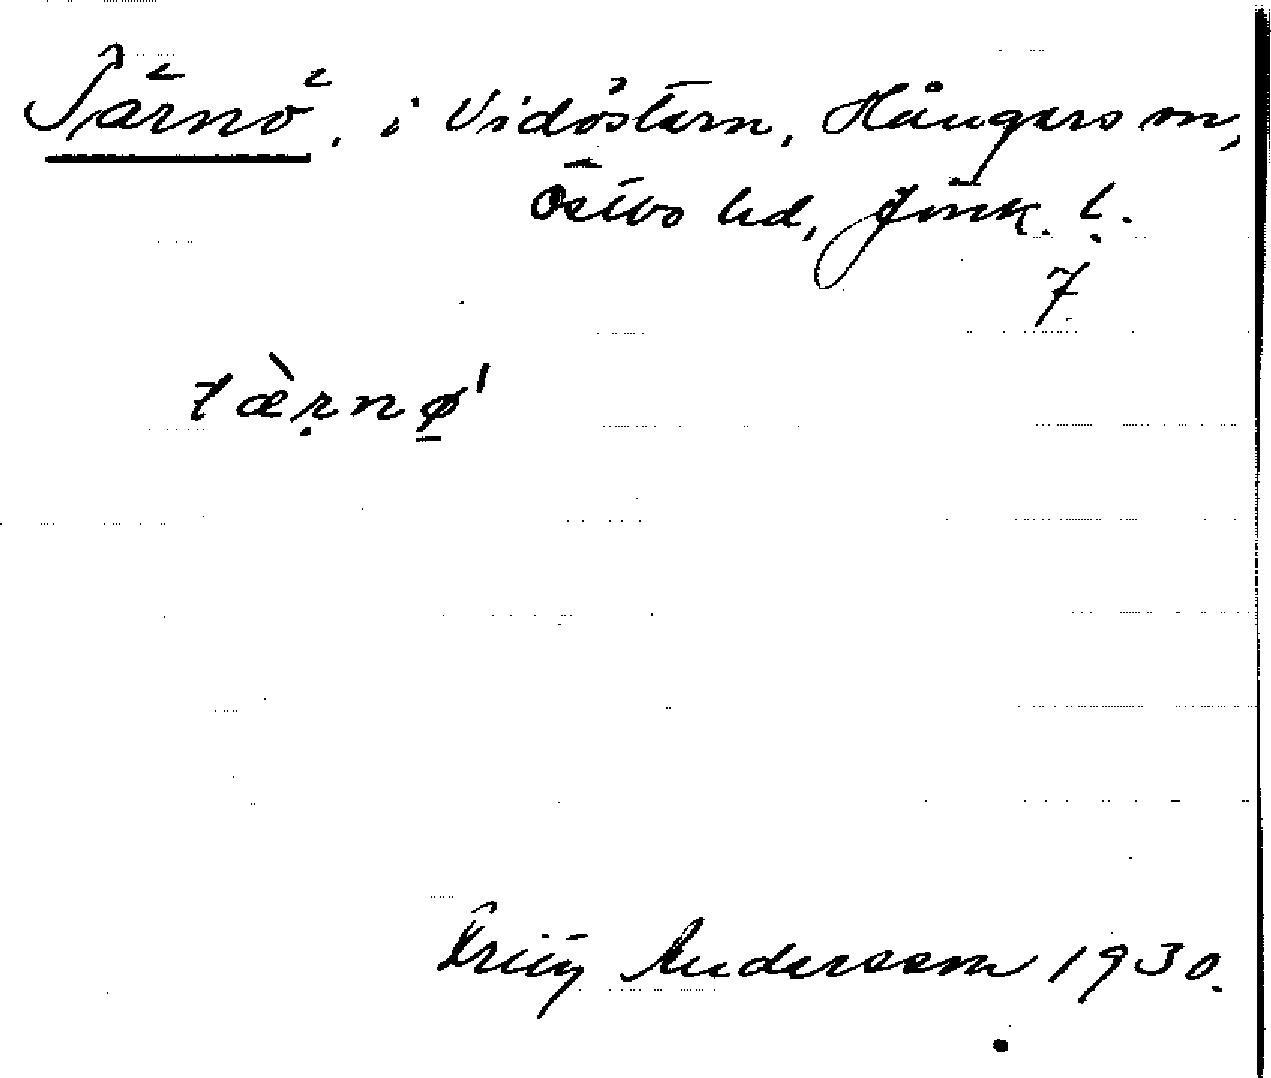 Tärnö, i Vidöstern, Hångers sn,
Östbo hd, Jönk. l.
7
tæ̀ṛnø̱ˈ
Fritz Andersson 1930.